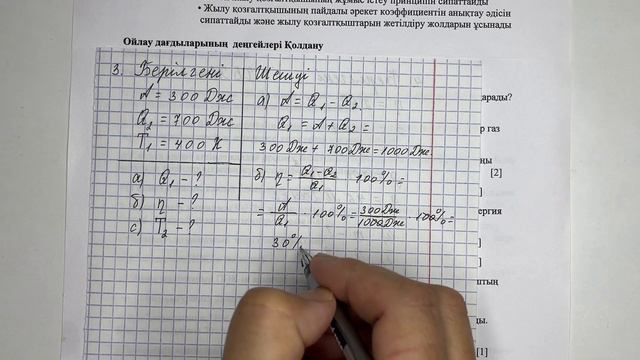 жылу қозғалтқышының жұмыс істеу принципін сипаттайды
• Жылу қозғалтқышының пайдалы әрекет коэффициентін анықтау әдісін
сипаттайды және жылу қозғалтқыштарын жетілдіру жолдарын ұсынады
Ойлау дағдыларының деңгейлері Қолдану
3. Берілгені
A = 300 Дж
Q₂ = 700 Дж
T₁ = 400 К
а) Q₁ - ?
б) η - ?
с) T₂ - ?
Шешуі
а) A = Q₁ - Q₂
Q₁ = A + Q₂ =
300 Дж + 700 Дж = 1000 Дж.
б) η = (Q₁ - Q₂)/Q₁ · 100% =
= A/Q₁ · 100% = 300 Дж/1000 Дж · 100% =
30%
арады?
р газ
[2]
ергия
штың
[1]